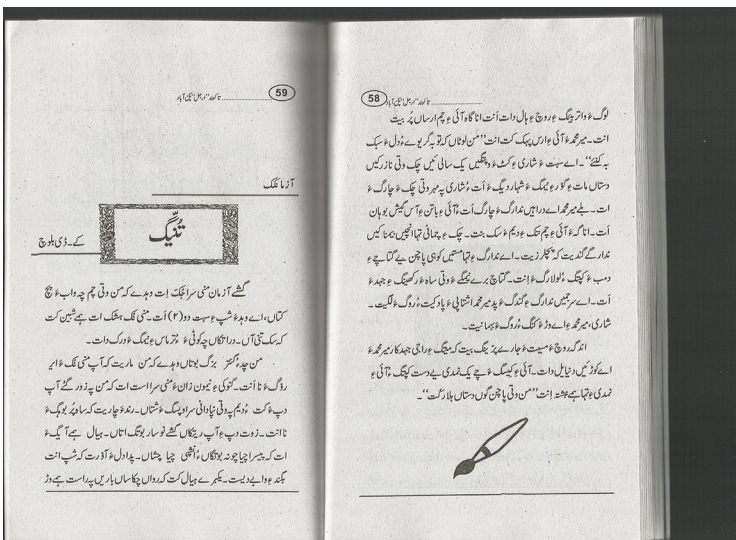 58
لوگ ءَ واتر بیگ ءِ روچ ءِ ہال دات اَنت اناگاہ آئی ءِ چم ارساں پُر بیت
انت۔ میر محمد ءَ آئی ءِ ارس پہک کت انت ”من لوٹاں کہ تو بہ گریوے ءُ دل ءَ سبک
بہ کنئے“۔ اے سہت ءَ شاری ءِ کٹ ءَ وپتگیں یک سالی ئیں چک وتی نازرکیں
دستاں مات ءِ گور ءِ نیمگ ءَ شہار دیگ ءَ اَت ءُ شاری پہ مہر وتی چک ءَ چارگ ءَ
ات۔ بلے میر محمد اے دراہیں ندارگ ءَ چارگ اَت ءُ آئی ءِ باتن ءِ آس گیش بوہان
اَت۔ اناگہ ءَ آئی ءِ چم تنک ءِ دیم ءَ سک بنت۔ چک ءِ چمانی تہا انچیں
ندارگے گندیت کہ اے ندارگ ءِ تہا مستیں کوہی پاچن یے گتاچے ءِ
دمب ءَ کپتگ ءُ لولارگ ءَ اِنت۔ گتاچ برے نیمگے ءَ وتی ساہ ءَ رکھینگ ءِ جہد ءَ
اَت۔ اے سرجمیں ندارگ ءِ گندگ ءَ پد میر محمد اشتاپی ءَ پاد کیت ءُ روگ ءَ لگیت۔
شاری، میر محمد ءِ اے وڑ ءَ کنگ ءُ روگ ءَ بہمانیت۔
اندگہ روچ ءَ میت ءَ جار ءِ پر ینگ بیت کہ میتگ ءِ راجی جہد کار میر محمد ءَ
اے کوڑئیں دنیا یل دات۔ آئی ءِ کیسگ ءَ چے یک نمدی یے دست کپتگ ءُ آئی ءِ
نمدی ءِ تہا ہے نبشتہ اِنت ”من وتی پاچن گوں دستاں ہلار کُت“۔
59
آزمانک
تُنّیگ
کے۔ ڈی بلوچ
گشے آزمان منی سرا کپگ اِت وہدے کہ من وتی چم چہ واب ءَ پچ
کتاں، اے وہد ءَ شپ ءِ سہت دو (۲) اَت۔ منی نک ہشک ات ہے شیبن کت
کہ سک تنی آں۔ دراتکاں چہ کوٹی ءَ ءُ تُرماس ءِ نیمگ ءَ درک دات۔
من چدء ُ گشتر بزگ بوتاں وہدے کہ من ماریت کہ آپ منی نک ءَ ایر
روگ ءَ نا اَنت۔ گنوکی ءِ نیمون زان ءَ منی سرا است ات کہ من پہ زور گٹے آپ
دپ ءَ کت ءُ دیم پہ وتی نپادانی سرا وپسگ ءَ شتاں۔ رند ءَ چاریت کہ ساہ پُر بوہگ ءَ
نا انت۔ زوت دپ ءِ آپ ریتکاں گشے نو سار بوتگ اتاں۔ ہیال ہے آیگ ءَ
ات کہ پیسرا چیا چونہ بوتگاں ءُ انشپی چیا چشاں۔ پدا دل ءَ آؤرت کہ شپ انت
بگند ءِ وابے دیست۔ یکبرے ہیال کت کہ رواں چکاساں باریں پہ راست ہے وڑ